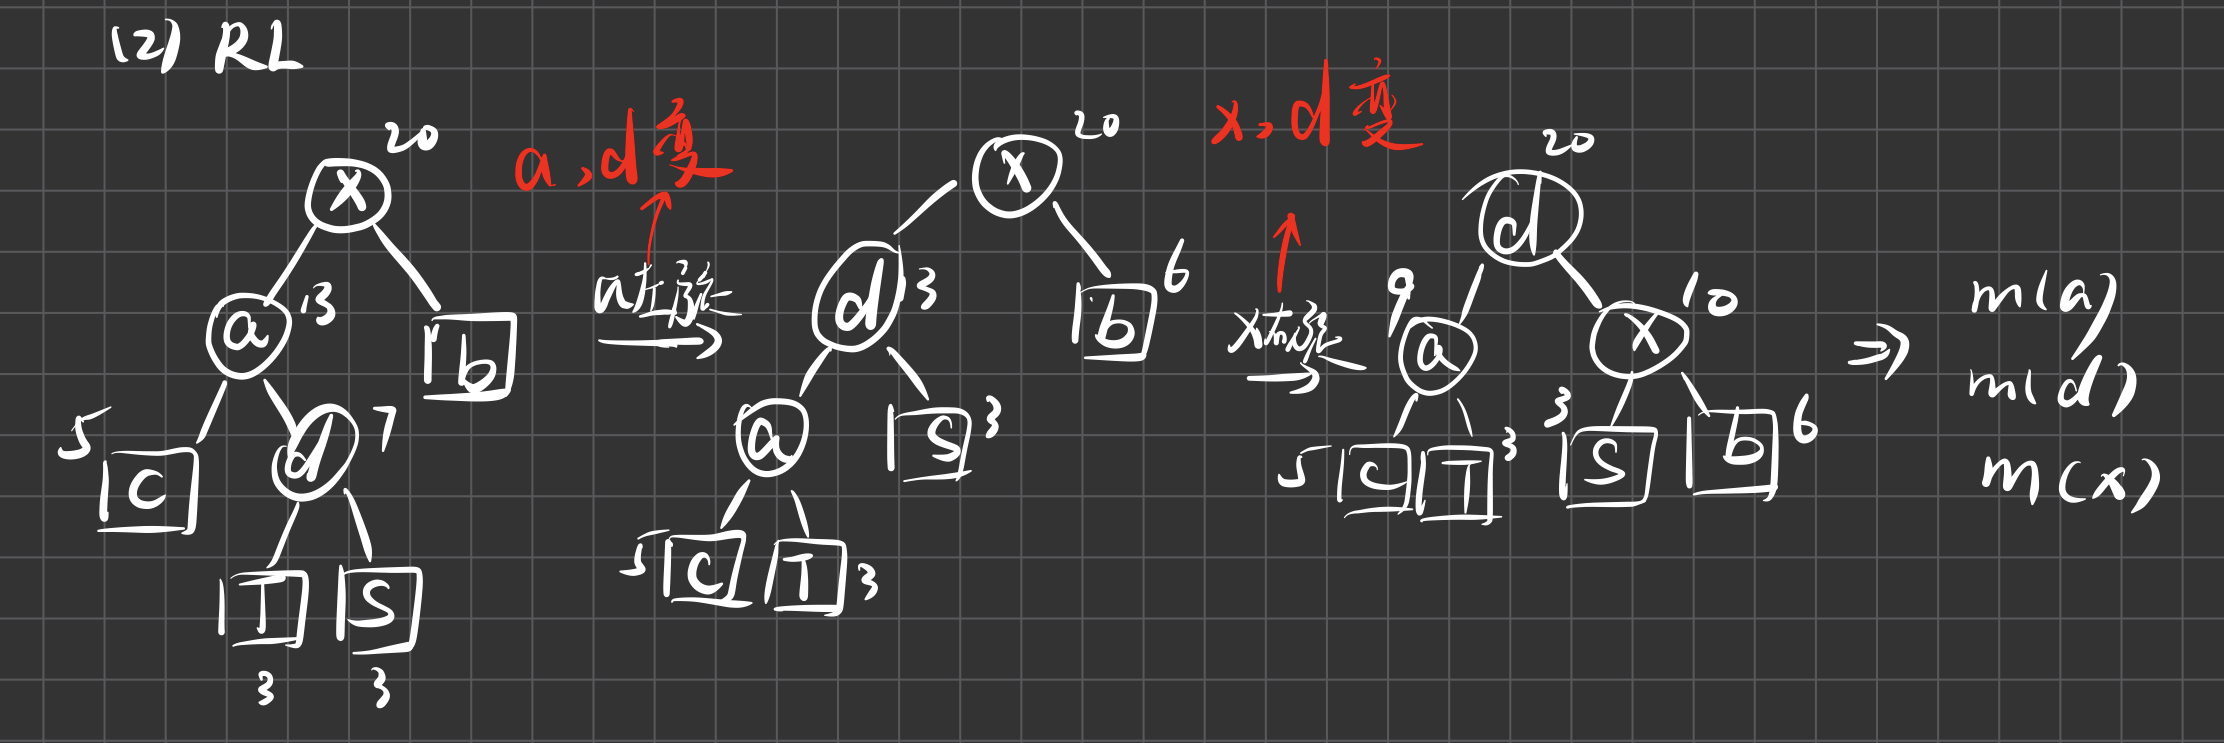 (2) RL
20
x
a 13
b
5 c
d 7
T
S
3
3
a,d变
a左旋
x 20
d 3
b 6
a
S 3
5 c
T 3
x,d变
x右旋
20
d
9 a
x 10
5 c
T 3
3 S
b 6
⇒
m(a)
m(d)
m(x)